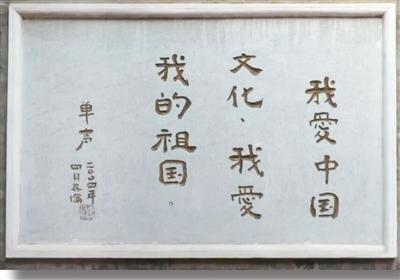 我爱中国
文化、我爱
我的祖国。
单声
二〇〇四年